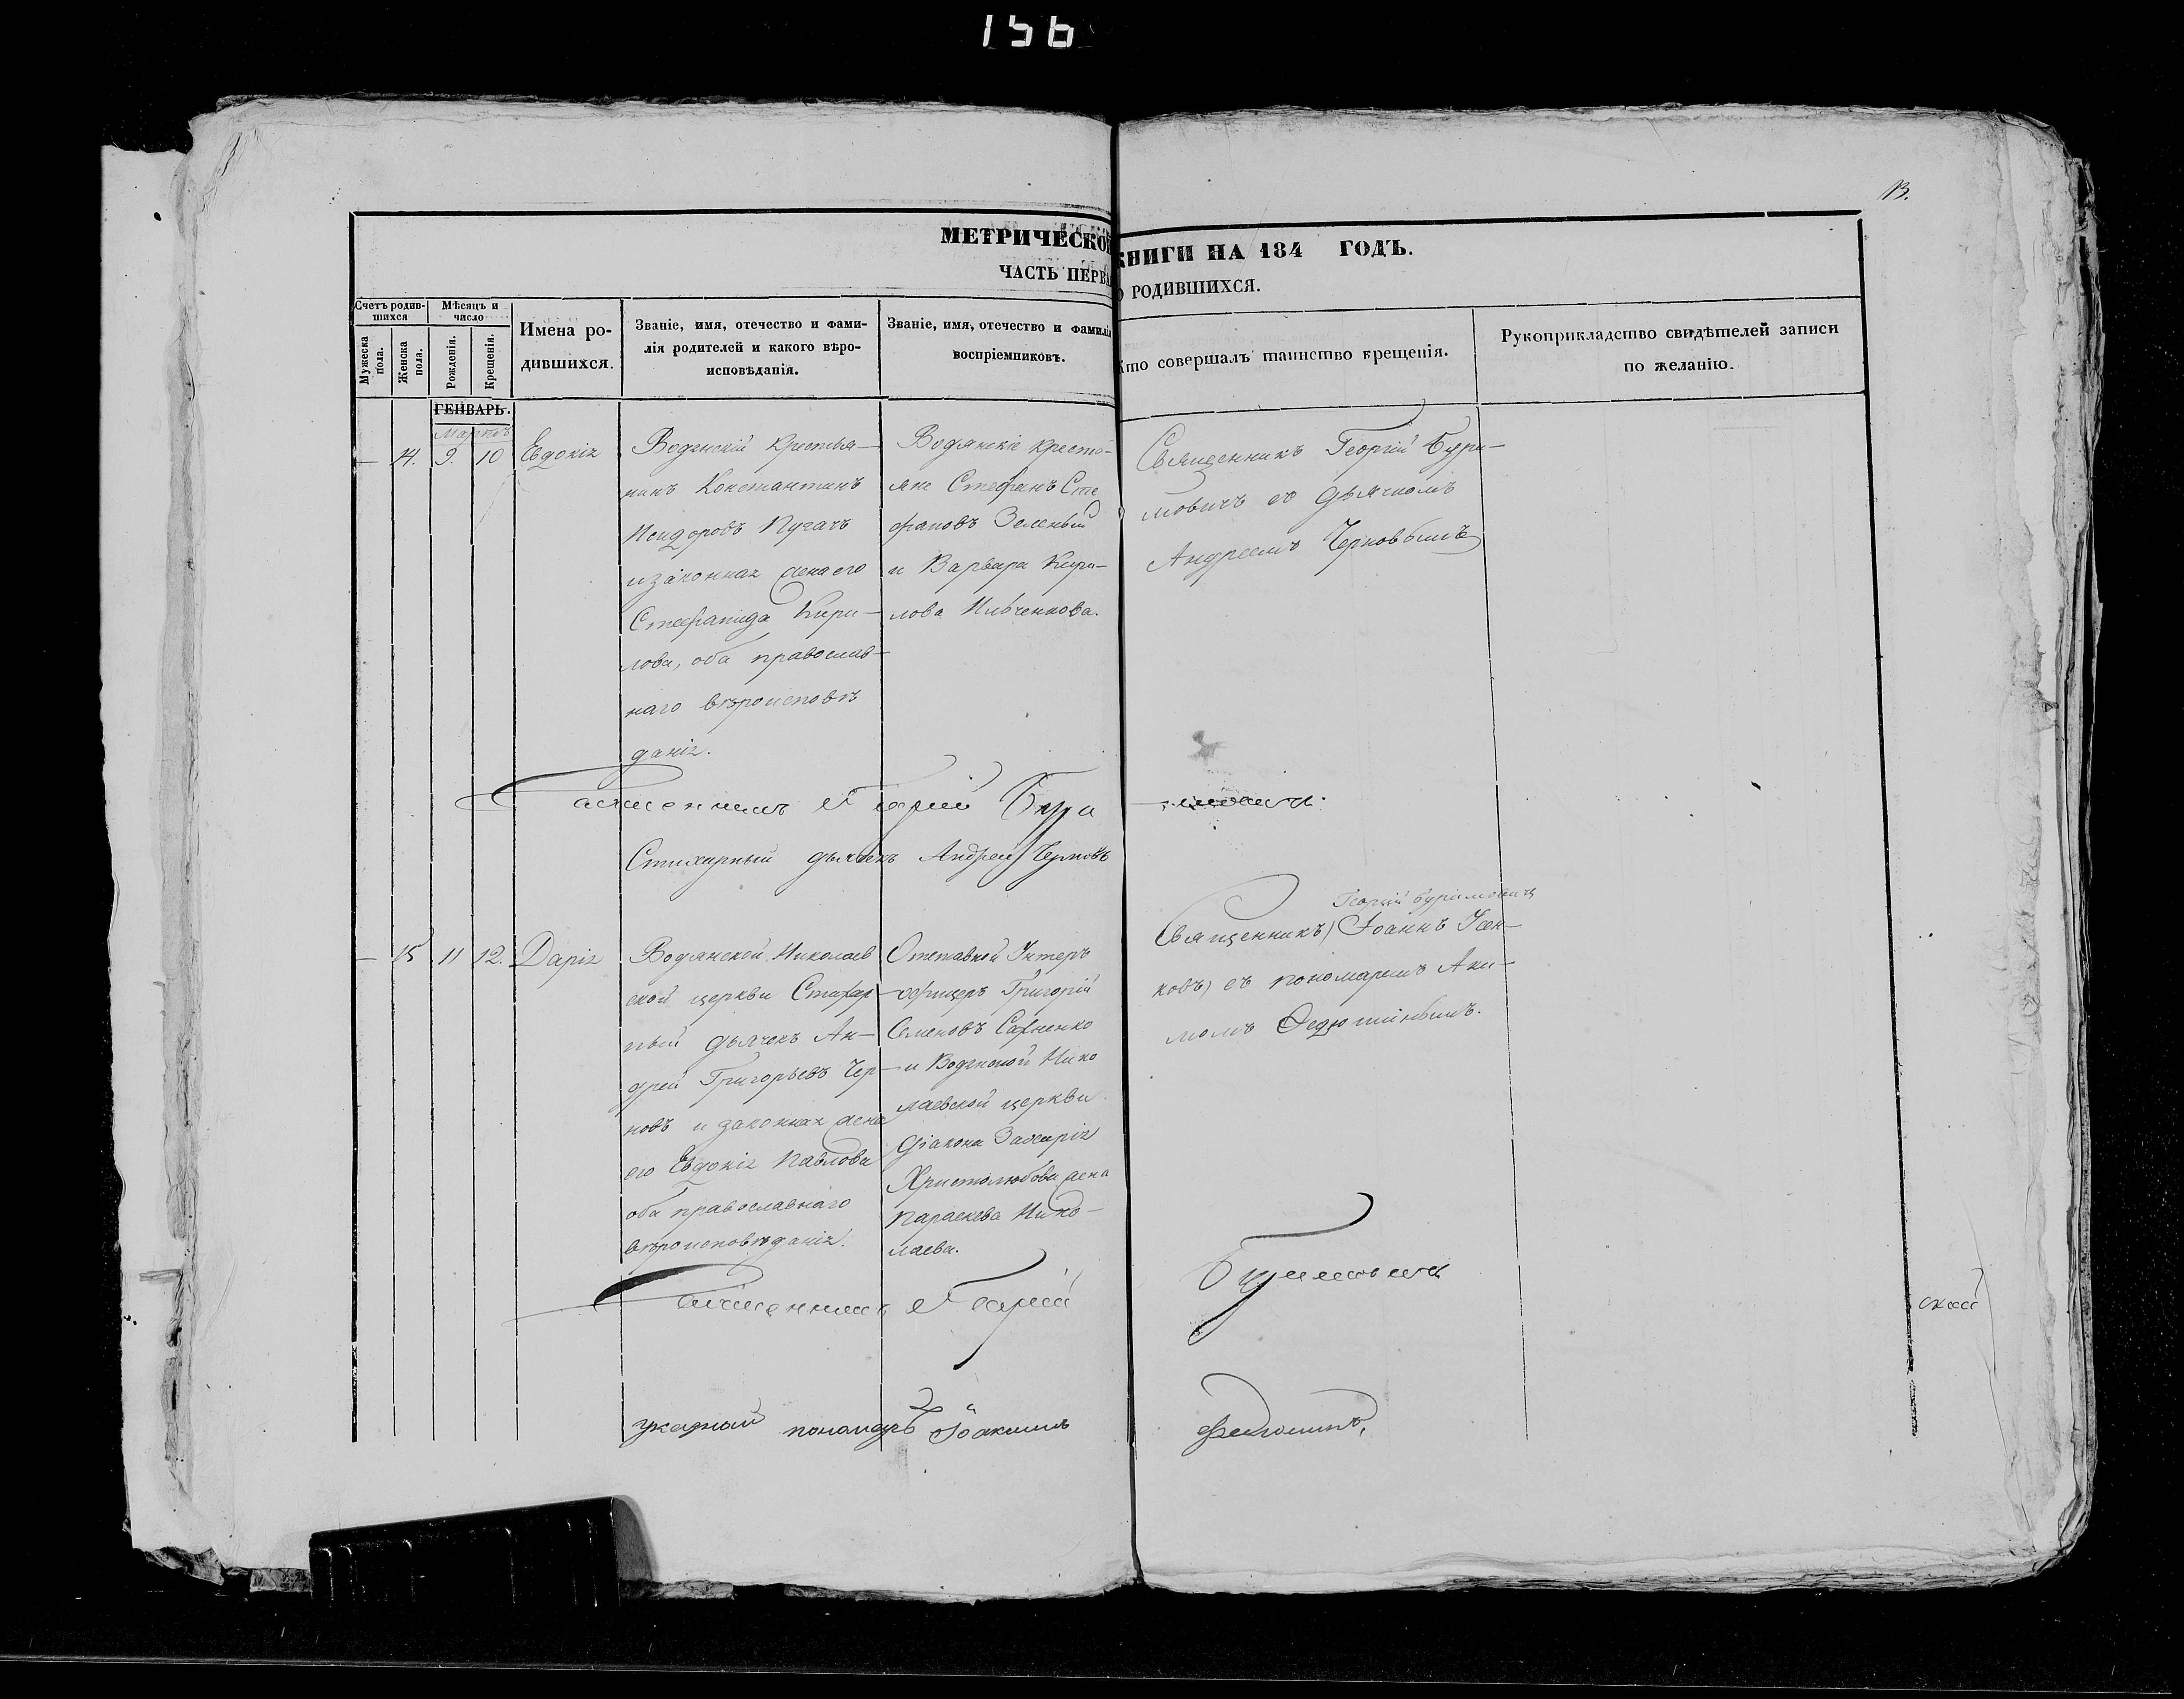 156
13.
МЕТРИЧЕСКОЙ КНИГИ НА 184 ГОДЪ.
ЧАСТЬ ПЕРВАЯ О РОДИВШИХСЯ.
Счетъ родив-
шихся
Мужеска пола.
Женска пола.
Мѣсяцъ и
число
Рожденія.
Крещенія.
Имена ро-
дившихся.
Званіе, имя, отечество и фами-
лія родителей и какого вѣро-
исповѣданія.
Званіе, имя, отечество и фамилія
воспріемниковъ.
Кто совершалъ таинство крещенія.
Рукоприкладство свидѣтелей записи
по желанію.
ГЕНВАРЬ.
Мартъ
— 14. 9. 10 Евдокія
Водянскій крестья-
нинъ Константинъ
Исидоровъ Пугачъ
и законная жена его
Стефанида Кири-
лова, оба православ-
наго вѣроисповѣ
данія.
Водянскіе кресть-
яне Стефанъ Сте
фановъ Зеленый
и Варвара Кири-
лова Ильченкова.
Священникъ Георгій Бури-
мовичъ съ дьячкомъ
Андреемъ Черновымъ
Священникъ Георгій Буримовичъ.
Стихарный дьячекъ Андрей Черновъ
— 15 11 12. Дарія
Водянской Николаев
ской церкви Стихар-
ный дьячекъ Ан-
дрей Григорьевъ Чер-
новъ и законная жена
его Евдокія Павлова
оба православнаго
вѣроисповѣданія.
Отставной Унтеръ
офицеръ Григорій
Семеновъ Сахненко
и Водянской Нико
лаевской церкви
діакона Захарія
Христолюбова жена
Параскева Нико-
лаева.
Георгій Буримовичъ
Священникъ) Іоаннъ Усен-
ковъ) съ пономаремъ Аки-
момъ Федюшинымъ.
Священникъ Георгій Буримовичъ
пономарь Іоакимъ Федюшинъ,